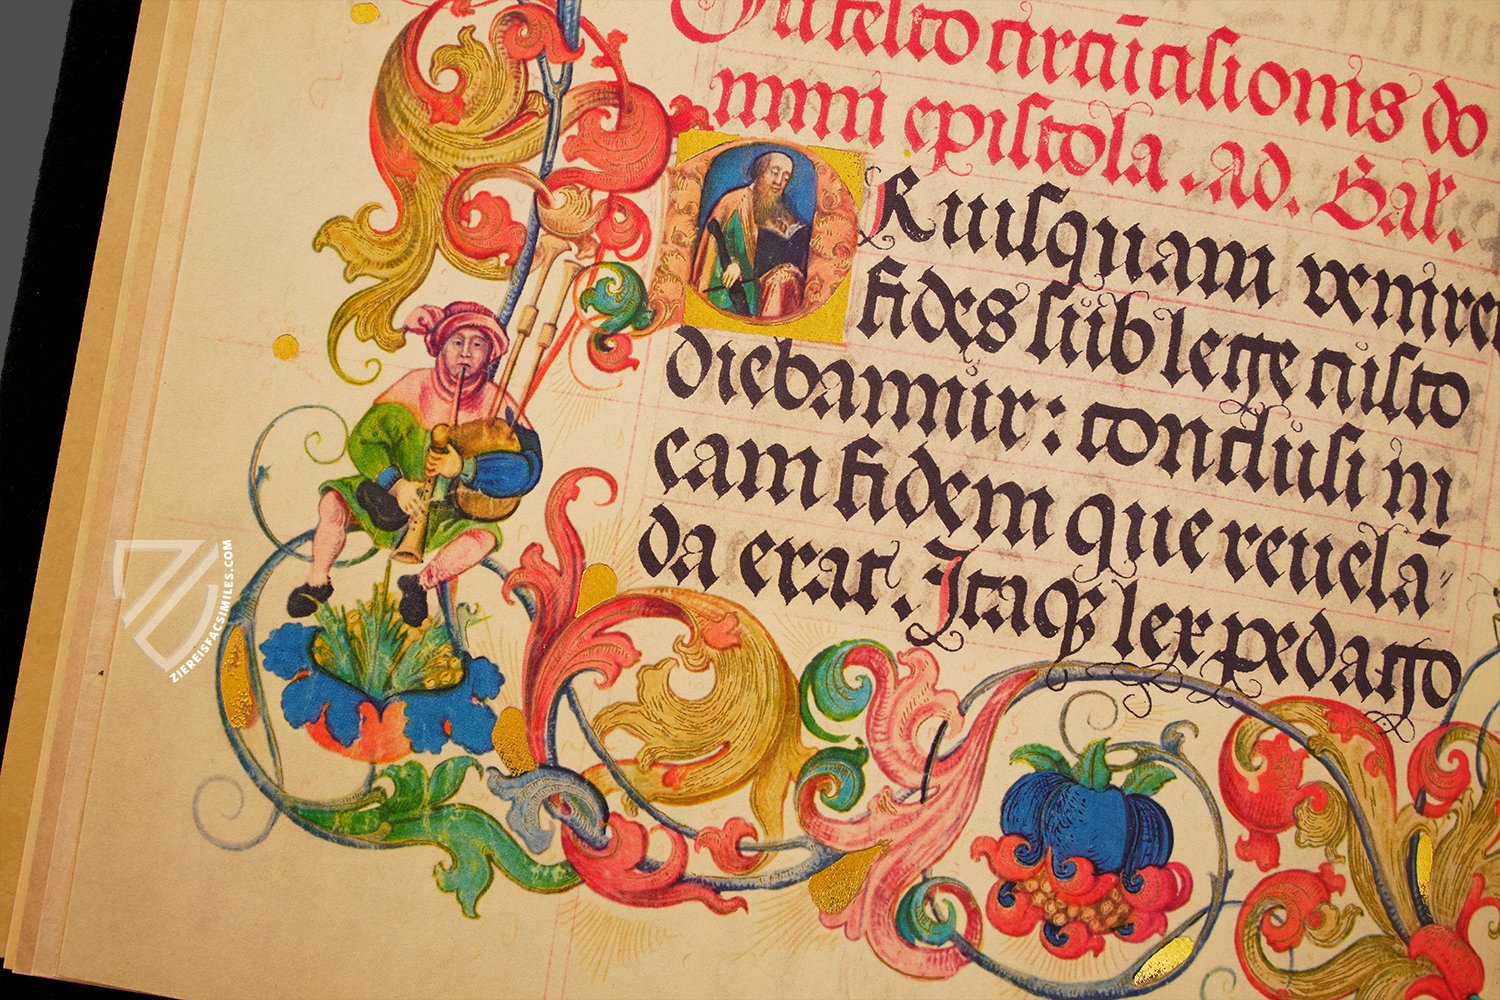 In festo circūcisionis do
mini epistola. Ad. Gal.
Riusquam venire
fides sub lege custo
diebamur: conclusi in
eam fidem que reuelā
da erat. Itaqꝫ lex pedago
ZIEREISFACSIMILES.COM